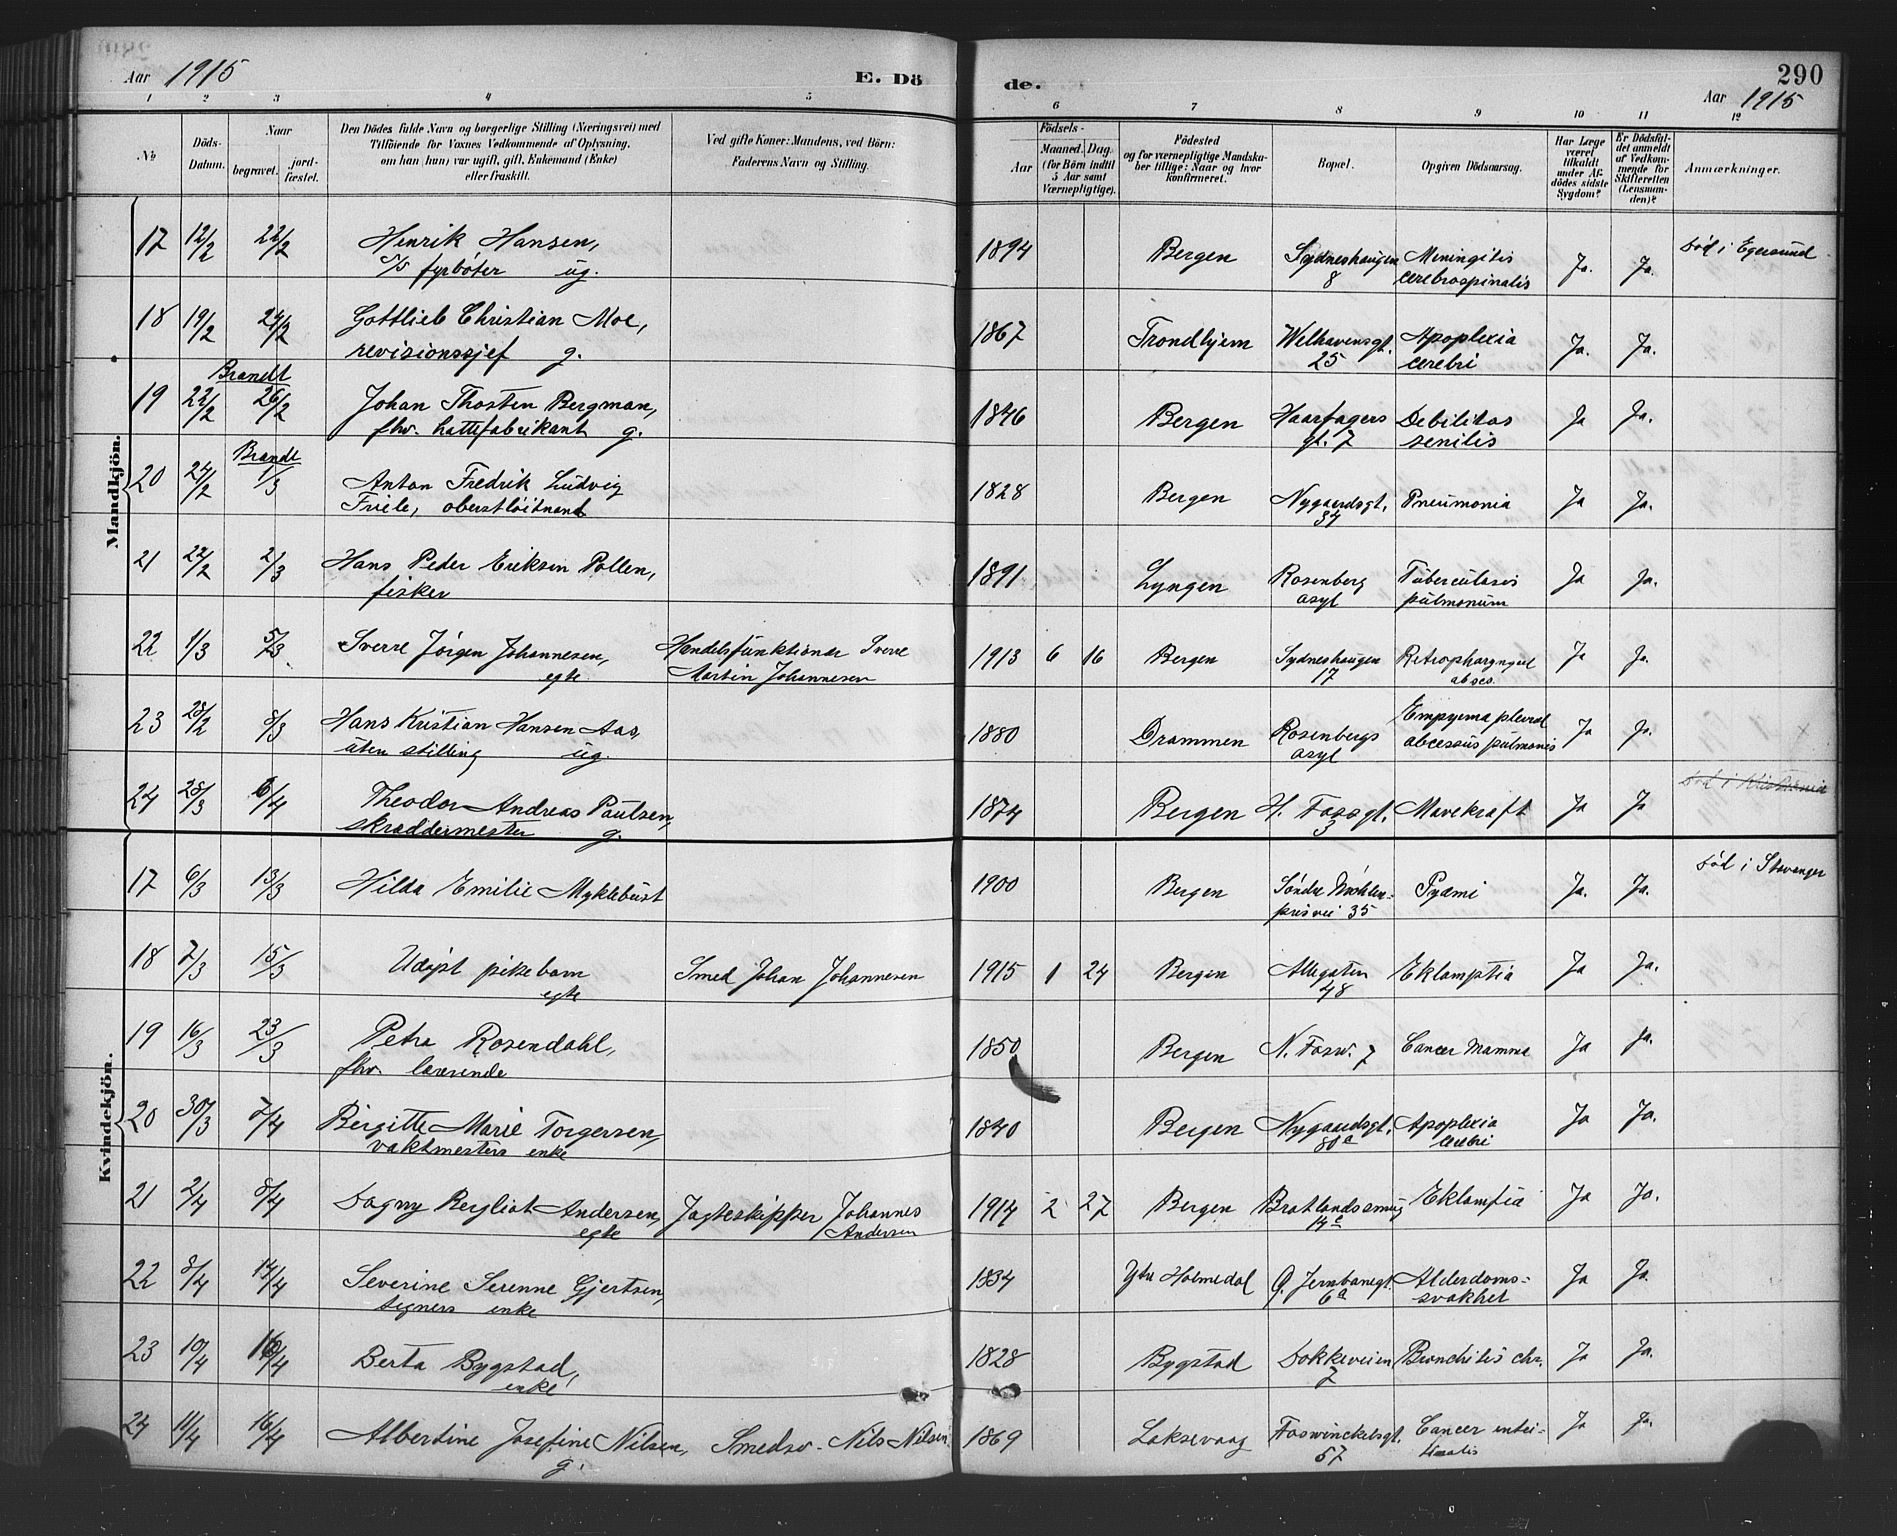 Aar 1915
E. Dö
de.
290
Aar 1915
1 2 3 4 5
6 7 8 9 10 11 12
No
Döds-Datum.
Naar
begravet.
jord-fæstet.
Den Dödes fulde Navn og borgerlige Stilling (Næringsvei) med
Tilföiende for Voxnes Vedkommende af Oplysning,
om han (hun) var ugift, gift, Enkemand (Enke)
eller fraskilt.
Ved gifte Koner: Mandens, ved Börn:
Faderens Navn og Stilling.
Födsels-
Aar
Maaned. Dag
(for Börn indtil
5 Aar samt
Værnepligtige).
Födested
og for værnepligtige Mandska-
ber tillige: Naar og hvor
konfirmeret.
Bopæl.
Opgiven Dödsaarsag.
Har Læge
været
tilkaldt
under Af-
dödes sidste
Sygdom?
Er Dödsfal-
det anmeldt
af Vedkom-
mende for
Skifteretten
(Lensman-
den)?
Anmærkninger.
Mandkjön.
17 12/2 22/2 Henrik Hansen, 1894 Bergen Sydneshaugen Meningitis Ja. Ja. Död i Egersund
S/S fyrböter ug. 8 cerebrospinalis
18 19/2 24/2 Gottlieb Christian Moe, 1867 Trondhjem Welhavensgt. Apoplexia Ja. Ja.
revisionssjef g. 25 cerebri
Brandt
19 22/2 26/2 Johan Thosten Bergman, 1846 Bergen Haarfagers Debilitas Ja Ja.
fhv. hattefabrikant g. gt. 7 senilis
Brandt
20 24/2 1/3 Anton Fredrik Ludvig 1828 Bergen Nygaardsgt. Pneumonia Ja Ja.
Friele, oberstlöitnant 34
21 22/2 2/3 Hans Peder Eriksen Pollen, 1891 Lyngen Rosenberg Tuberculosis Ja Ja.
fisker asyl pulmonum
22 1/3 5/3 Sverre Jörgen Johannesen, Handelsfunktionær Sverre 1913 6 16 Bergen Sydneshaugen Retropharyngeal Ja Ja.
egte Martin Johannesen 17 absces
23 28/2 8/3 Hans Kristian Hansen Aas, 1880 Drammen Rosenbergs Empyema pleural Ja Ja.
uten stilling ug. asyl abcessus pulmonis
24 28/3 6/4 Theodor Andreas Paulsen, 1874 Bergen H. Fossgt. Mavekraft Ja Ja Död i Kristiania
skræddermester g. 3
Kvindekjön.
17 6/3 13/3 Hilda Emilie Myklebust 1900 Bergen Söndre Möhlen- Pyæmi Ja. Ja. Död i Stavanger
prisvei 35
18 7/3 15/3 Udöpt pikebarn Smed Johan Johannesen 1915 1 24 Bergen Allegaten Eklamptia Ja Ja.
egte 48
19 16/3 23/3 Petra Rosendahl, 1850 Bergen N. Fosw. 7 Cancer mamma Ja Ja.
fhv. lærerinde
20 30/3 7/4 Birgitte Marie Torgersen, 1840 Bergen Nygaardsgt. Apoplexia Ja Ja.
vaktmesters enke 80a cerebri
21 2/4 8/4 Dagny Bergliot Andersen, Jagteskipper Johannes 1914 2 27 Bergen Bratlandssmug Eklampsia Ja Ja.
egte Andersen 14c
22 8/4 14/4 Severine Serenne Gjertsen, 1834 Ytre Holmedal Ø. Jernbanegt. Alderdoms- Ja Ja
tegners enke 6a svakhet
23 10/4 16/4 Berta Bygstad, 1828 Bygstad Dokkeveien Bronchitis chr. Ja Ja.
enke 7
24 11/4 16/4 Albertine Josefine Nilsen, Smedsv. Nils Nilsen 1869 Laksevaag Foswinckelsgt. Cancer intes- Ja Ja.
g. 57 tinalis